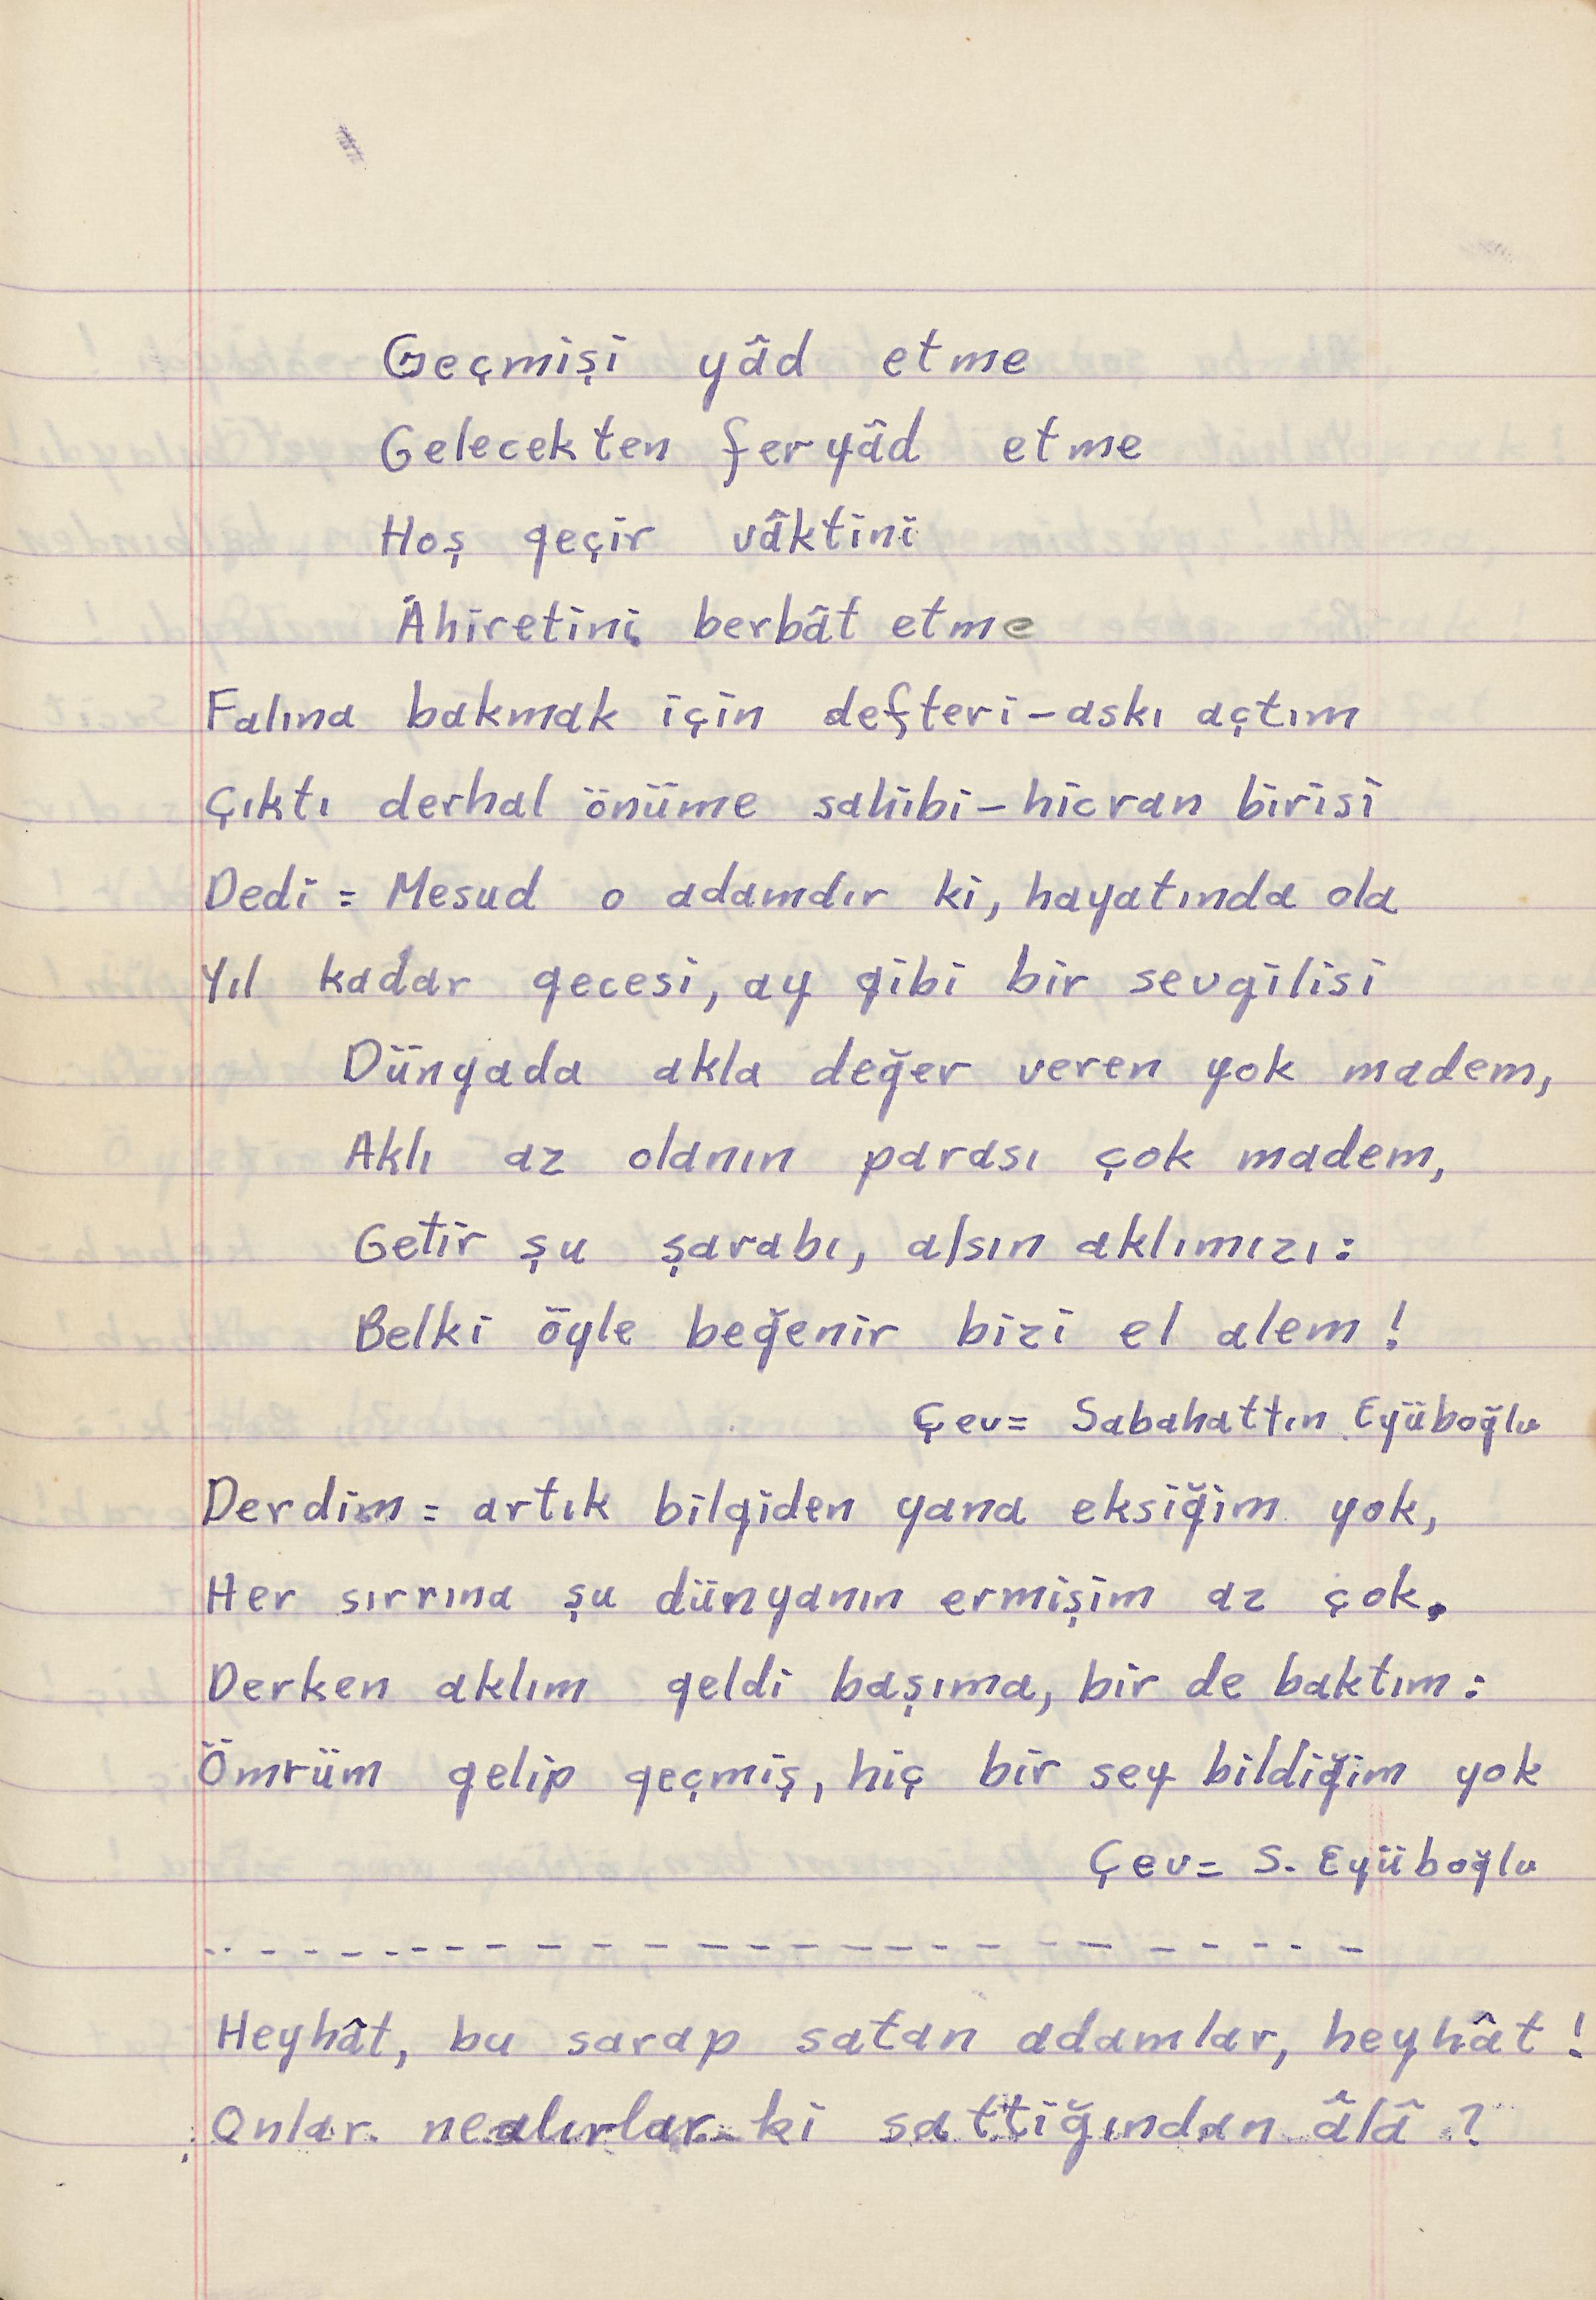 Geçmişi yâd etme
Gelecekten feryâd etme
Hoş geçir vâktini
Âhiretini berbât etme
Falına bakmak için defteri-askı açtım
Çıktı derhal önüme sahibi-hicran birisi
Dedi = Mesud o adamdır ki, hayatında ola
Yıl kadar gecesi, ay gibi bir sevgilisi
Dünyada akla değer veren yok madem,
Aklı az olanın parası çok madem,
Getir şu şarabı, alsın aklımızı:
Belki öyle beğenir bizi el alem!
Çev= Sabahattın Eyüboğlu
Derdim = artık bilgiden yana eksiğim yok,
Her sırrına şu dünyanın ermişim az çok.
Derken aklım geldi başıma, bir de baktım:
Ömrüm gelip geçmiş, hiç bir sey bildiğim yok
Çev= S. Eyüboğlu
Heyhât, bu sarap satan adamlar, heyhât!
Onlar ne alırlar ki sattiğından âlâ?